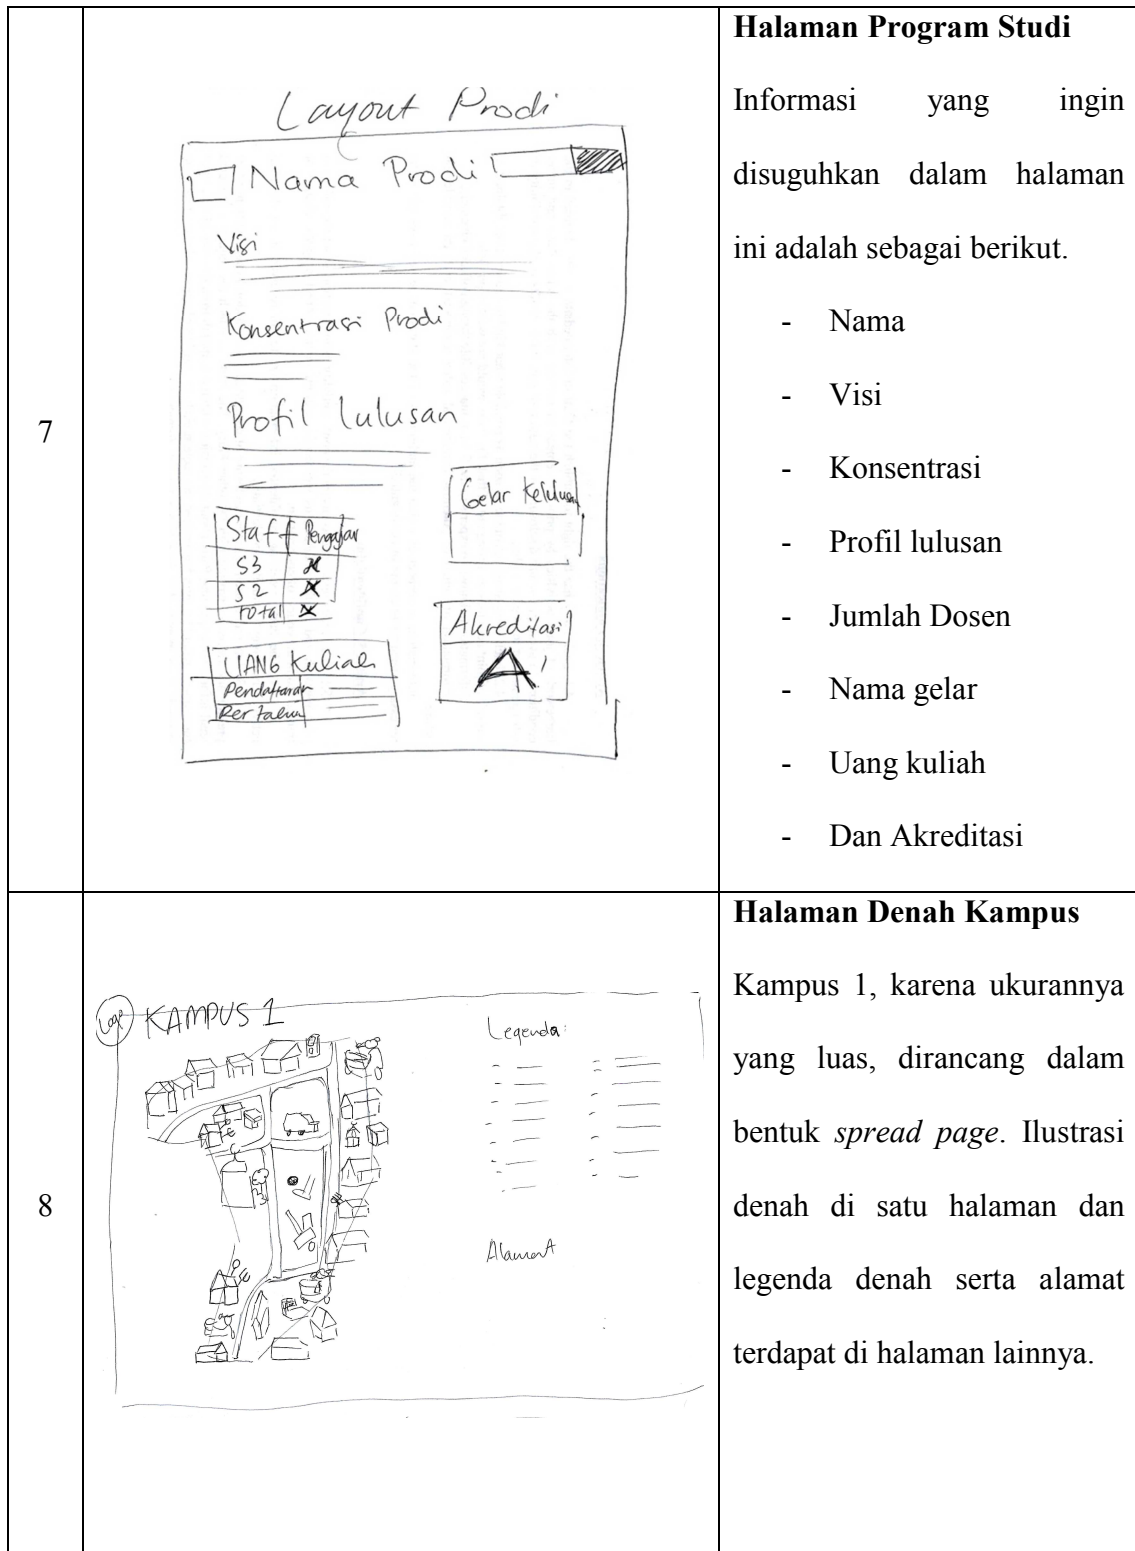 7
Layout Prodi
Nama Prodi
Visi
Konsentrasi Prodi
Profil lulusan
Gelar Kelulusan
Staff Pengajar
S3
S2
Total
Akreditasi
A
UANG Kuliah
Pendaftaran
Per tahun
Halaman Program Studi
Informasi yang ingin
disuguhkan dalam halaman
ini adalah sebagai berikut.
- Nama
- Visi
- Konsentrasi
- Profil lulusan
- Jumlah Dosen
- Nama gelar
- Uang kuliah
- Dan Akreditasi
8
Logo
KAMPUS 1
Legenda:
Alamat
Halaman Denah Kampus
Kampus 1, karena ukurannya
yang luas, dirancang dalam
bentuk spread page. Ilustrasi
denah di satu halaman dan
legenda denah serta alamat
terdapat di halaman lainnya.